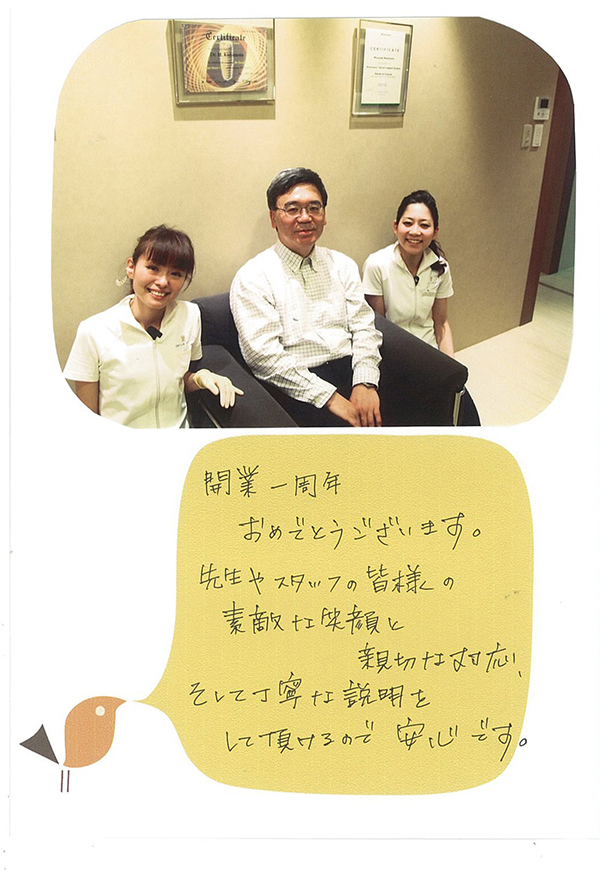 Certificate
CERTIFICATE
開業一周年
おめでとうございます。
先生やスタッフの皆様の
素敵な笑顔と
親切な対応、
そして丁寧な説明を
して頂けるので安心です。